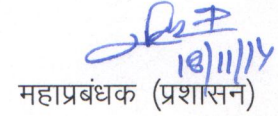 18/11/14
महाप्रबंधक (प्रशासन)